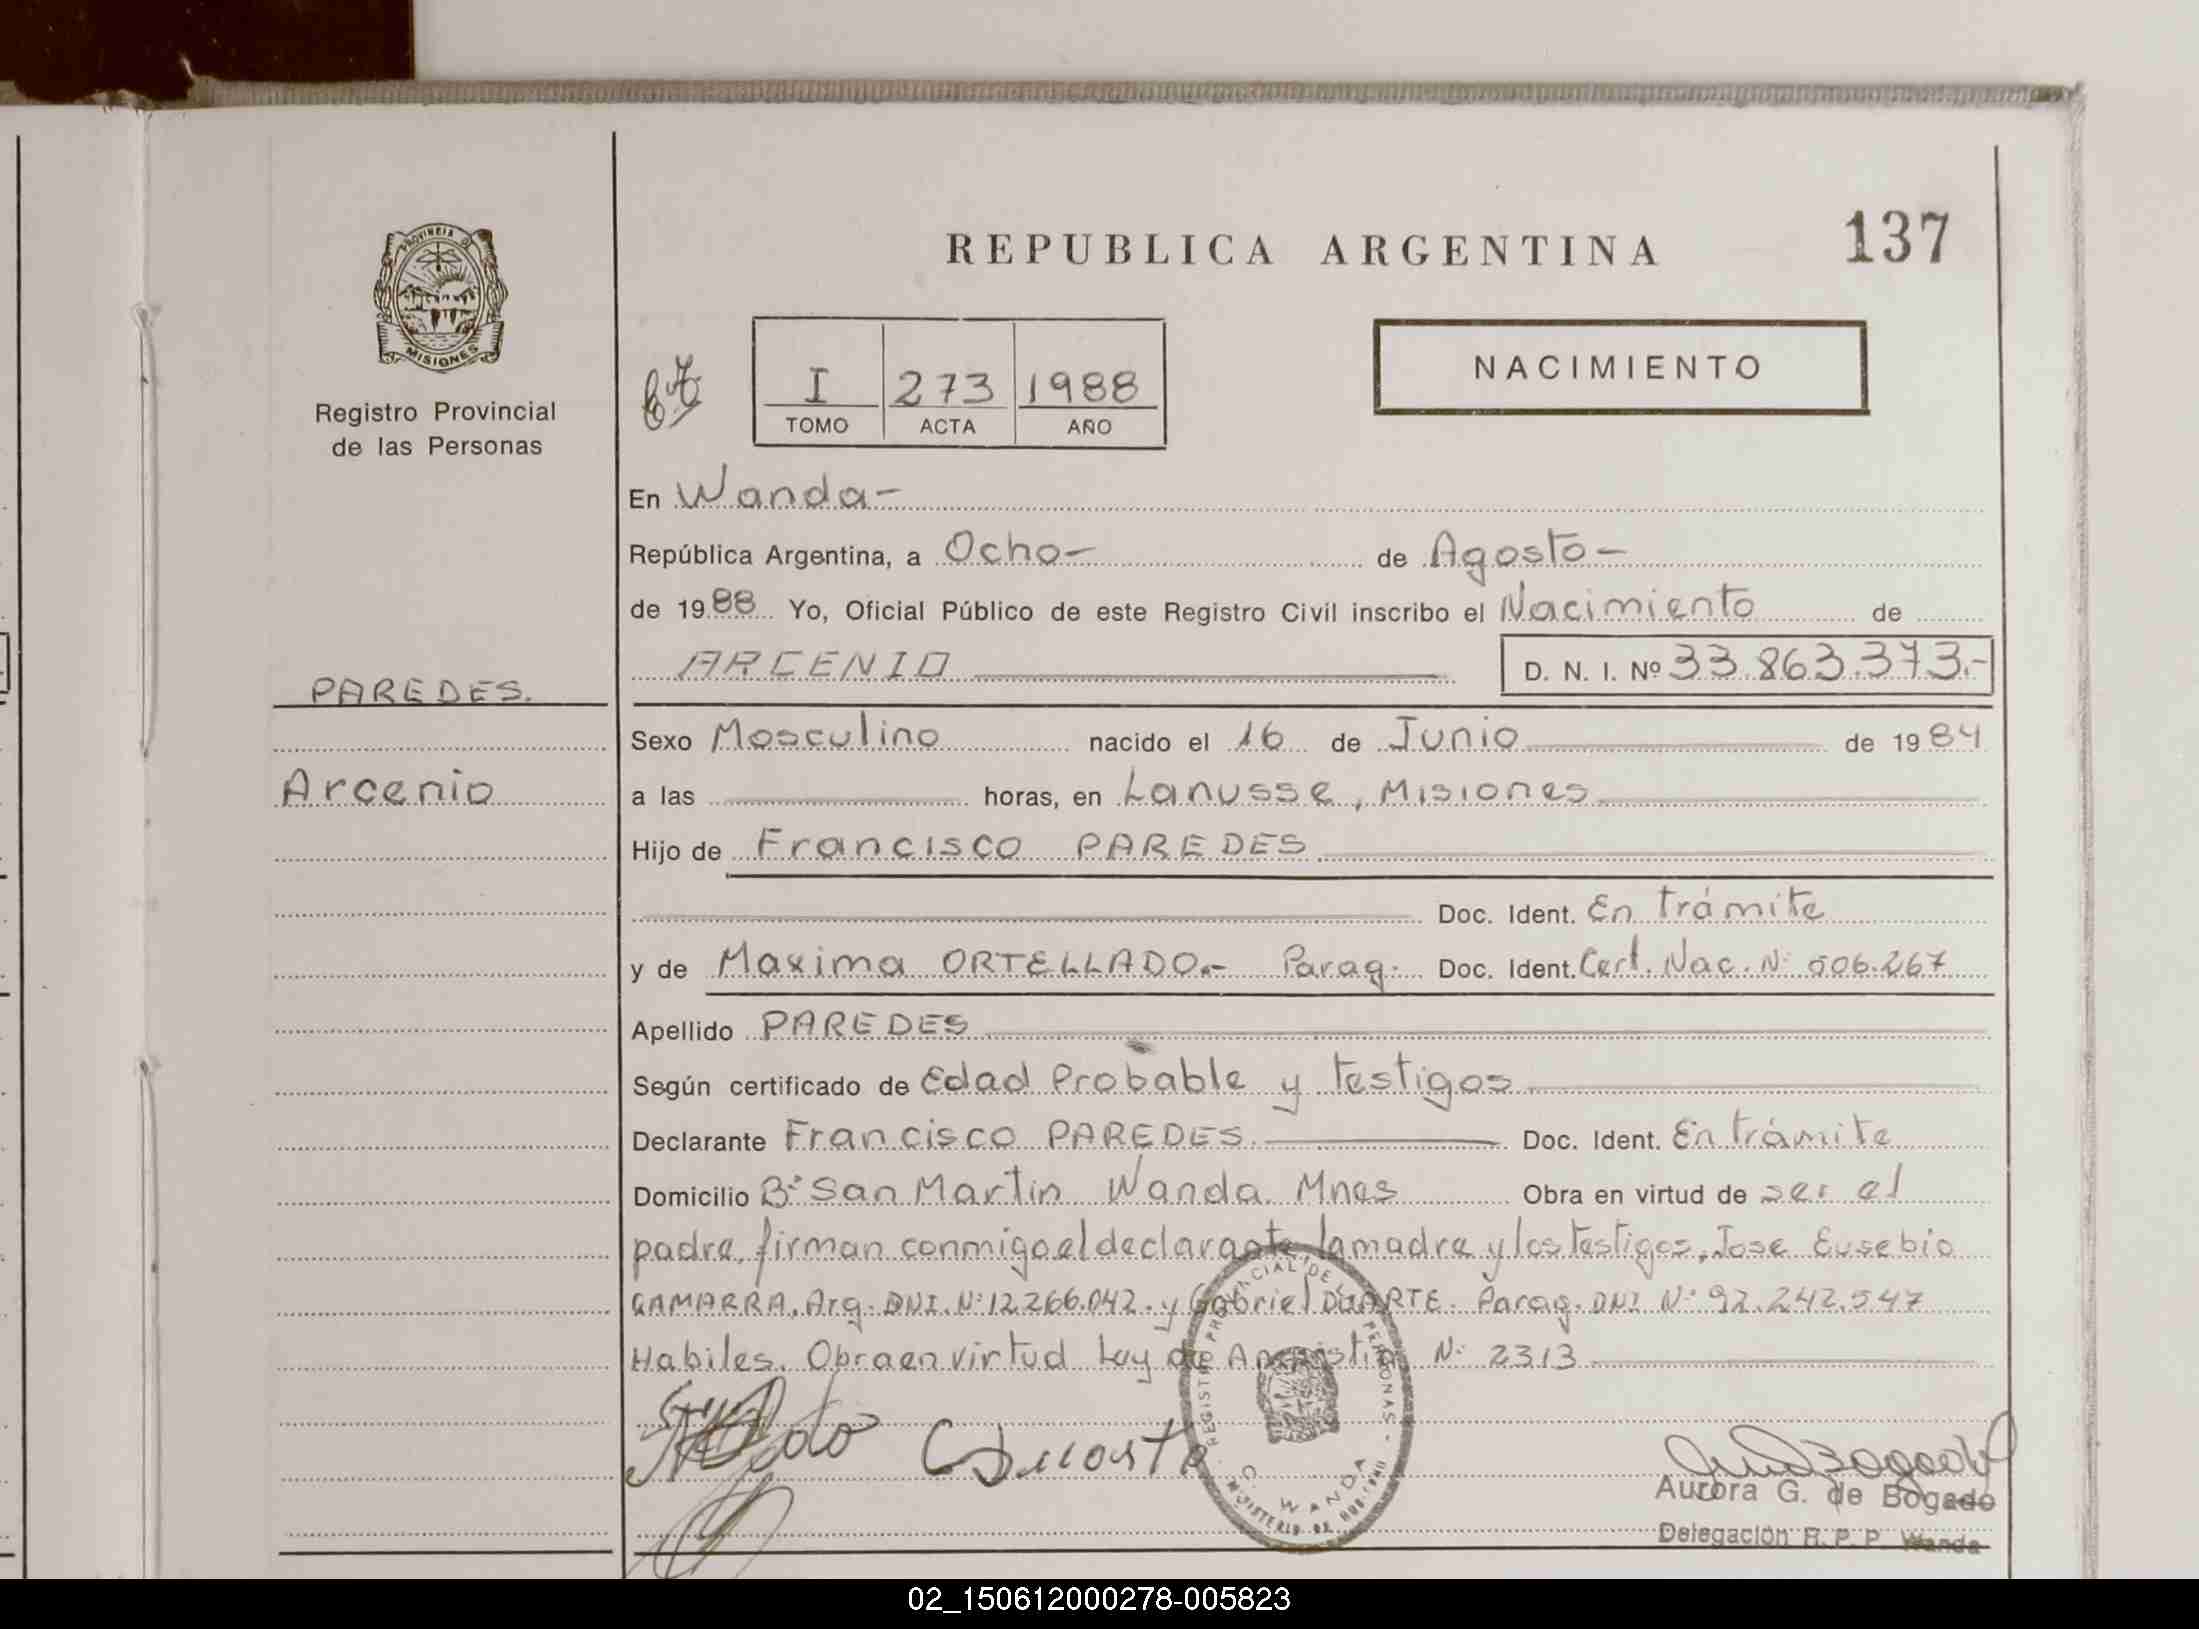 PROVINCIA DE
MISIONES
Registro Provincial
de las Personas
PAREDES.
Arcenio
REPUBLICA ARGENTINA
137
NACIMIENTO
I 273 1988
TOMO ACTA AÑO
En Wanda-
República Argentina, a Ocho- de Agosto-
de 1988 Yo, Oficial Público de este Registro Civil inscribo el Nacimiento de
ARCENIO D. N. I. Nº 33.863.373.-
Sexo Masculino nacido el 16 de Junio de 1984
a las horas, en Lanusse, Misiones
Hijo de Francisco PAREDES
Doc. Ident. En trámite
y de Maxima ORTELLADO.- Parag. Doc. Ident. Cert. Nac. Nº 506.267
Apellido PAREDES
Según certificado de Edad Probable y testigos
Declarante Francisco PAREDES Doc. Ident. En trámite
Domicilio Bº San Martin Wanda Mnes Obra en virtud de ser el
padre, firman conmigo el declarante, la madre y los testigos, Jose Eusebio
GAMARRA, Arg. DNI. Nº 12.266.042. y Gabriel DUARTE. Parag. DNI Nº 92.242.547
Habiles. Obra en virtud Ley de Amnistia Nº 2313
REGISTRO PROVINCIAL DE LAS PERSONAS
WANDA
Aurora G. de Bogado
Delegación R. P. P. Wanda
02_150612000278-005823